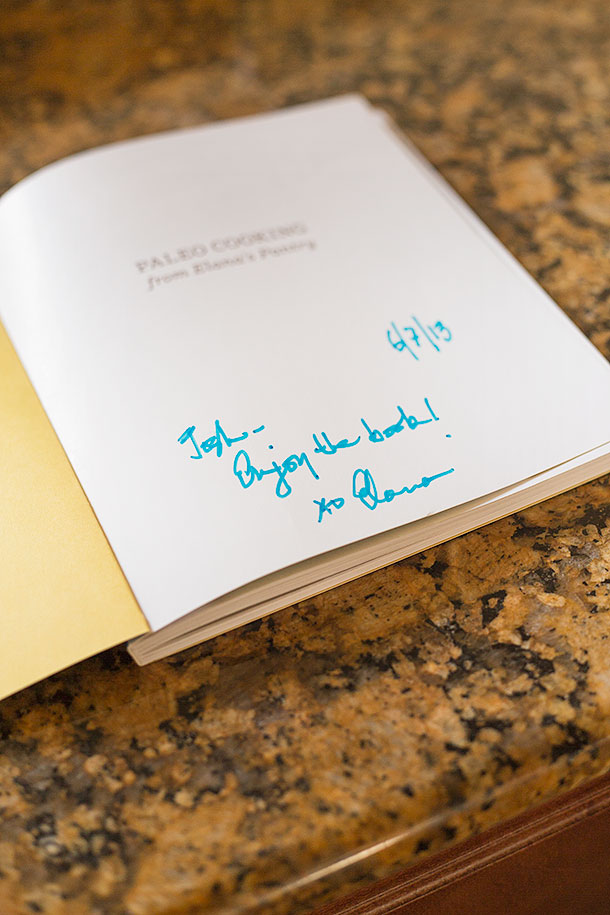 PALEO COOKING
from Elana's Pantry
6/7/13
Josh-
Enjoy the book!
xo Elana